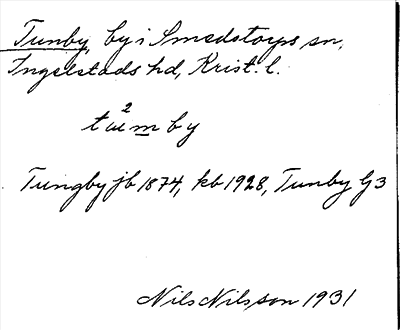 Tunby, by i Smedstorps sn,
Ingelstads hd, Krist. l.
Tungby jb 1874, kb 1928, Tunby G3
Nils Nilsson 1931